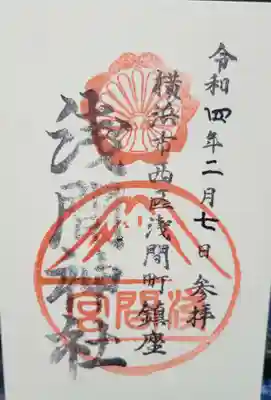 令和四年二月七日 参拝
横浜市西区浅間町鎮座
浅間神社
浅間宮